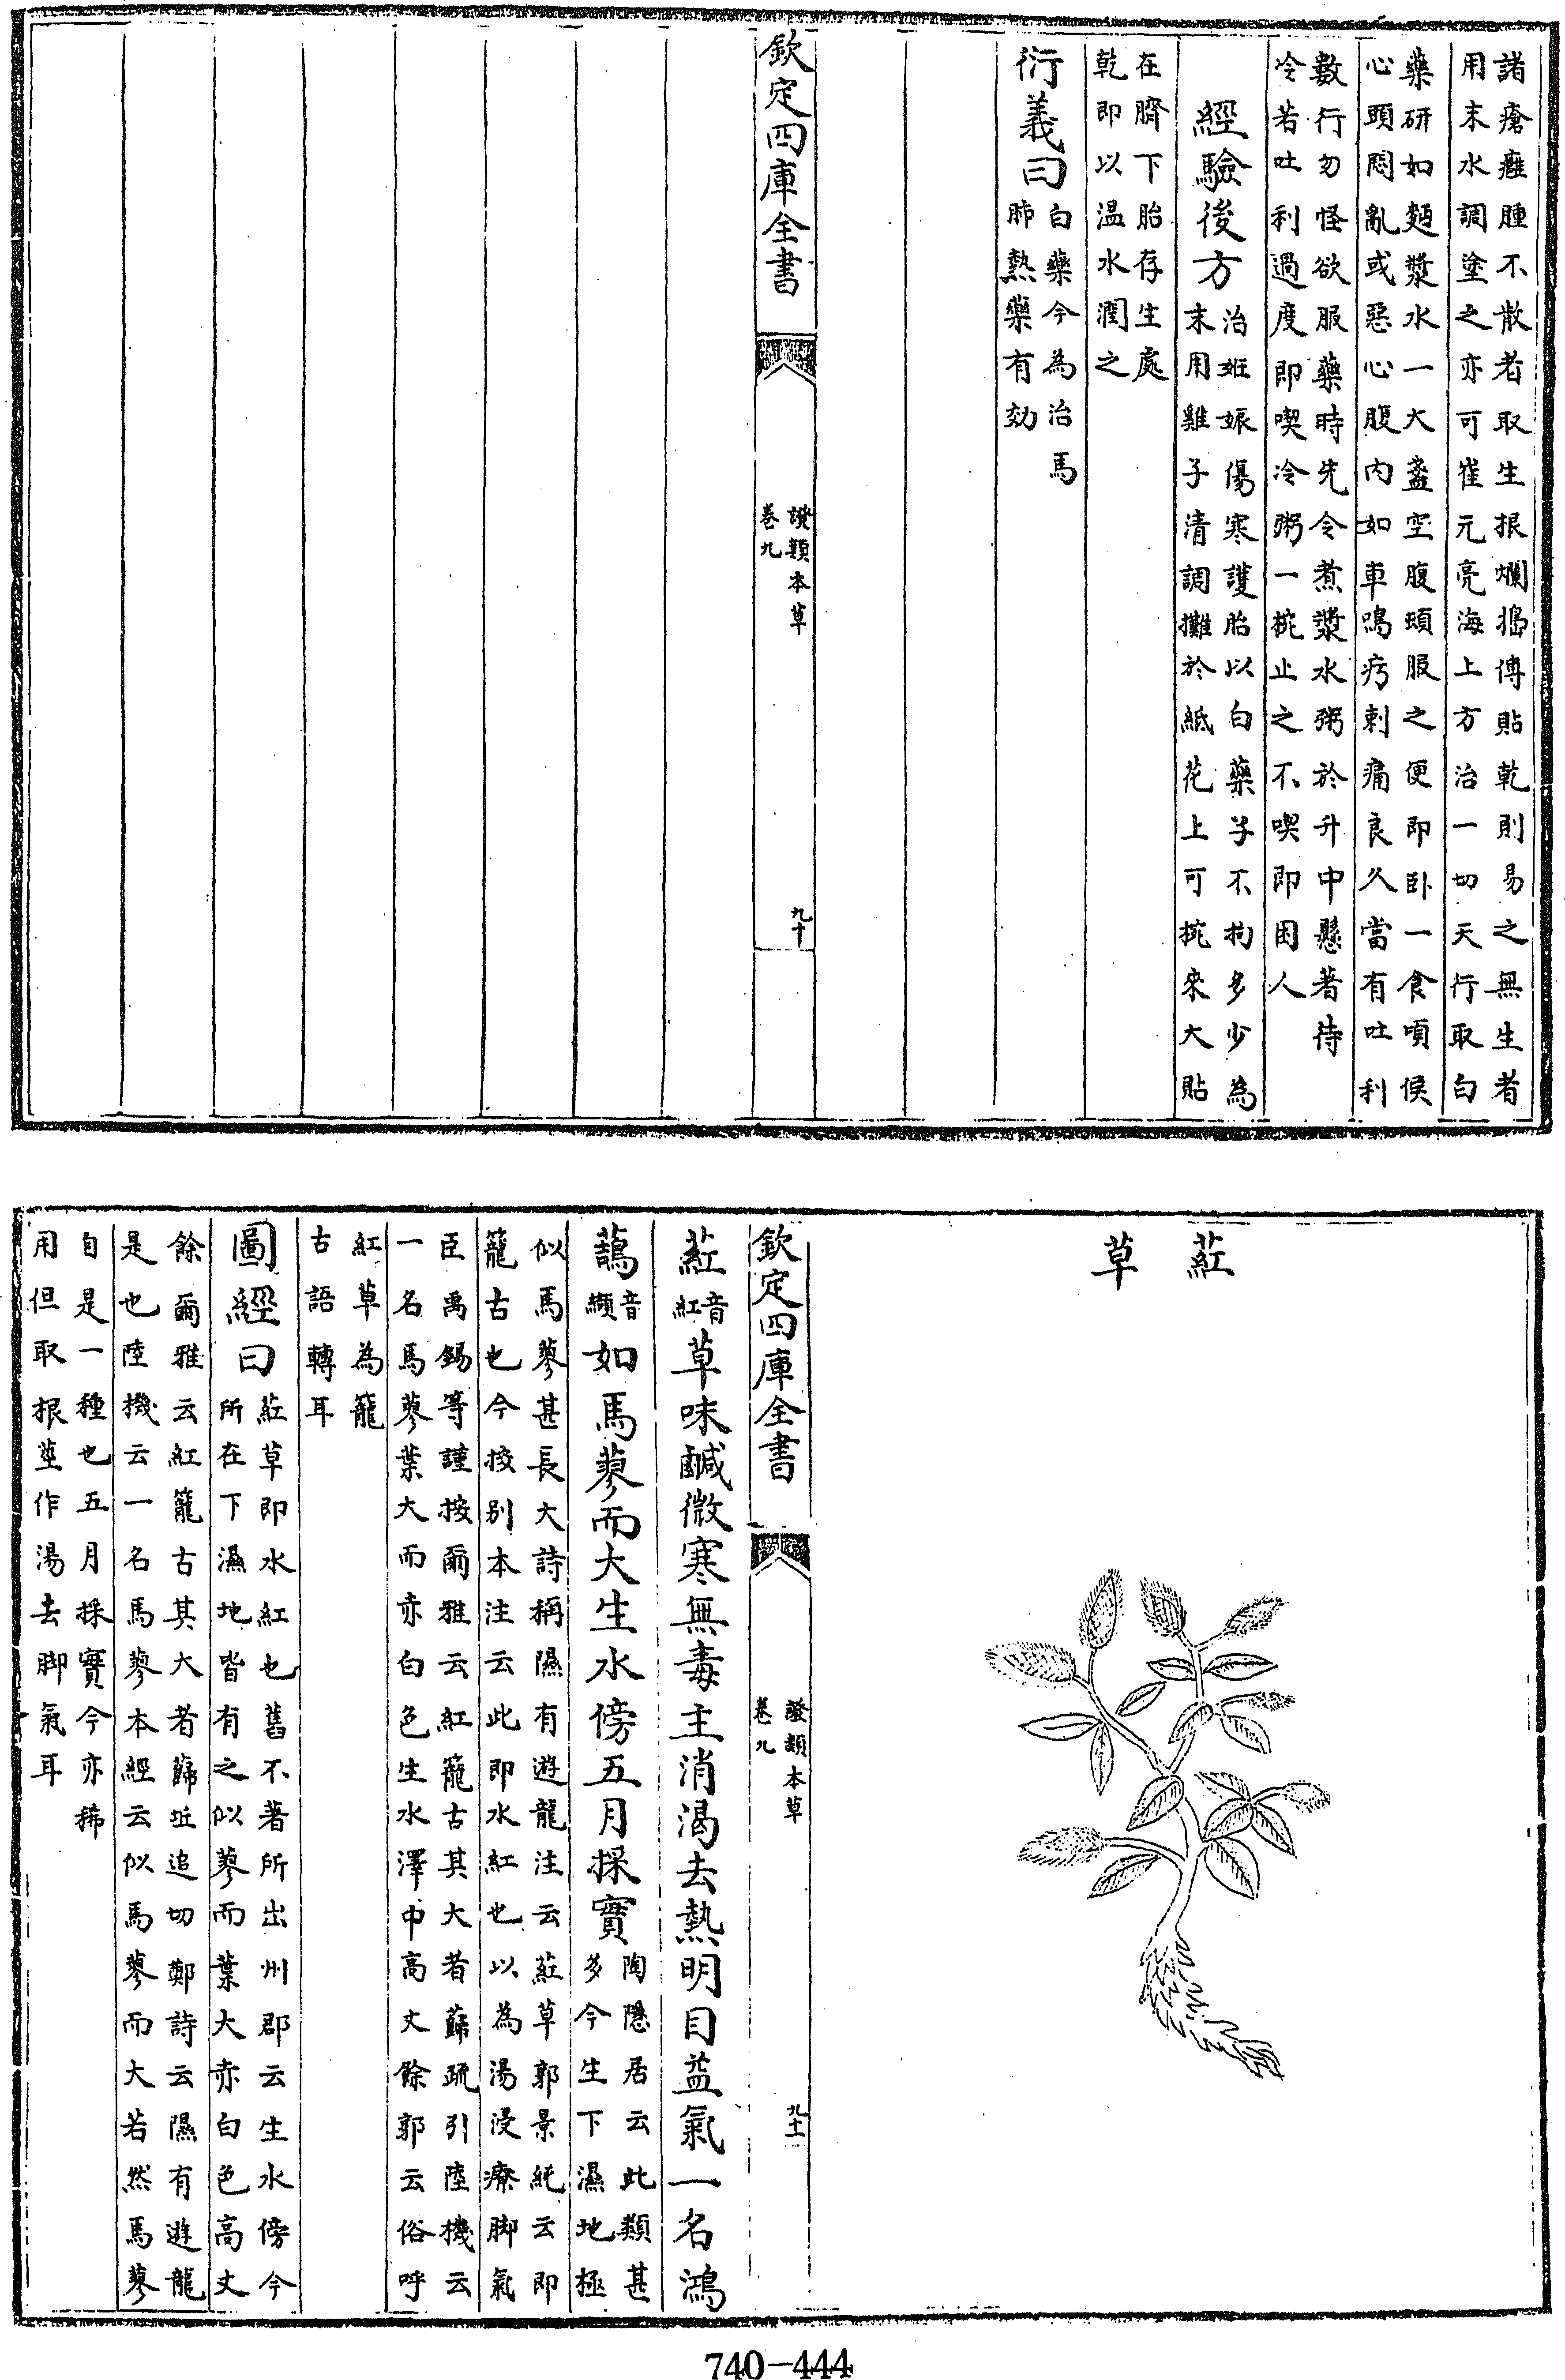 諸瘡癰腫不散者取生根爛搗傅貼乾則易之無生者
用末水調塗之亦可崔元亮海上方治一切天行取白
藥研如麪漿水一大盞空腹頓服之便即卧一食頃候
心頭悶亂或惡心腹内如車鳴㽲刺痛良久當有吐利
數行勿怪欲服藥時先令煮漿水粥於升中懸著待
冷若吐利過度即喫冷粥一椀止之不喫即困人
經驗後方
治妊娠傷寒護胎以白藥子不拘多少為
末用雞子清調攤於紙花上可椀來大貼
在臍下胎存生處
乾即以温水潤之
衍義曰
白藥今為治馬
肺熱藥有効
欽定四庫全書
證類本草
卷九
九十
葒草
欽定四庫全書
證類本草
卷九
九十一
葒音紅草味鹹微寒無毒主消渴去熱明目益氣一名鴻
䕺音纈如馬蓼而大生水傍五月採實
陶隱居云此類甚
多今生下濕地極
似馬蓼甚長大詩稱隰有遊龍注云葒草郭景純云即
籠古也今按别本注云此即水紅也以為湯浸療脚氣
臣禹錫等謹按爾雅云紅籠古其大者蘬疏引陸機云
一名馬蓼葉大而赤白色生水澤中高丈餘郭云俗呼
紅草為籠
古語轉耳
圖經曰
葒草即水紅也舊不著所出州郡云生水傍今
所在下濕地皆有之似蓼而葉大赤白色高丈
餘爾雅云紅籠古其大者蘬丘追切鄭詩云隰有遊龍
是也陸機云一名馬蓼本經云似馬蓼而大若然馬蓼
自是一種也五月採實今亦稀
用但取根莖作湯去脚氣耳
740-444